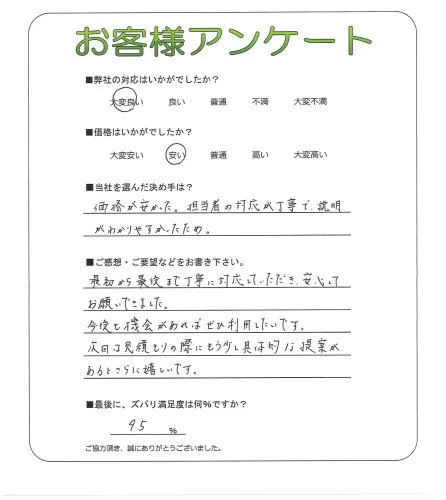 お客様アンケート
■弊社の対応はいかがでしたか？
大変良い 良い 普通 不満 大変不満
■価格はいかがでしたか？
大変安い 安い 普通 高い 大変高い
■当社を選んだ決め手は？
価格が安かった。担当者の対応が丁寧で、説明
がわかりやすかったため。
■ご感想・ご要望などをお書き下さい。
最初から最後まで丁寧に対応していただき、安心して
お願いできました。
今後も機会があればぜひ利用したいです。
次回は見積もりの際にもう少し具体的な提案が
あるとさらに嬉しいです。
■最後に、ズバリ満足度は何%ですか？
95 %
ご協力頂き、誠にありがとうございました。